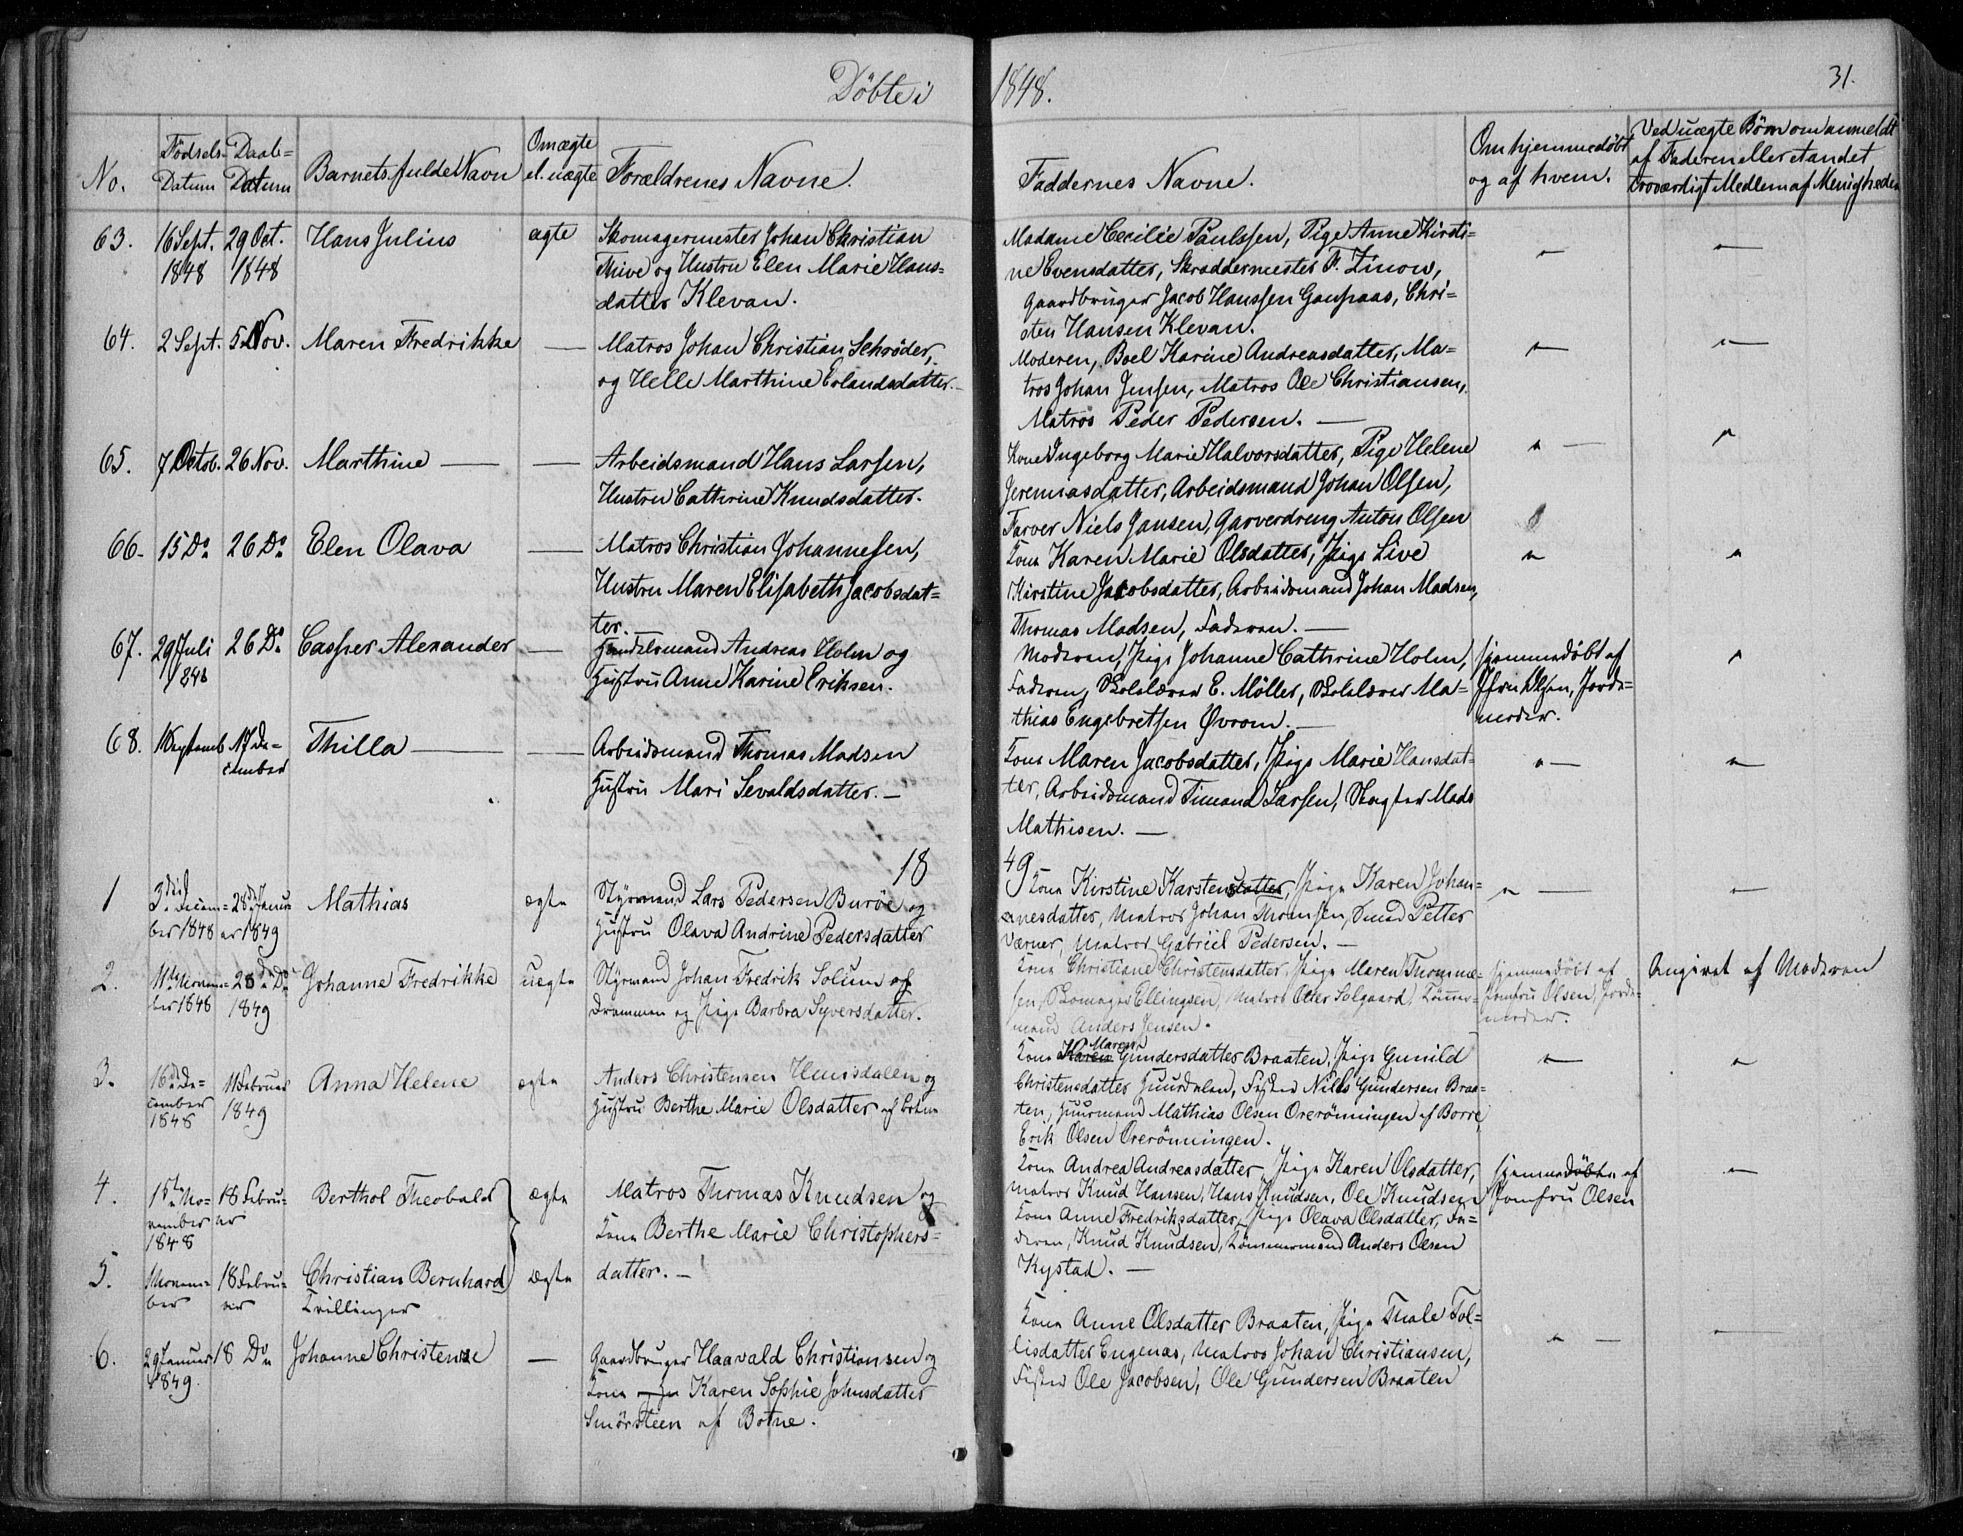 Döbte i 1848.
31.
No.
Födsels-Datum
Daabs-Datum
Barnets fulde Navn
Om ægte el. uægte
Forældrenes Navne.
Faddernes Navne.
Om hjemmedöbt og af hvem.
Ved uægte Börn om anmeldt af Faderen eller et andet troværdigt Medlem af Menigheden
63. 16 Sept. 1848 29 Oct. 1848 Hans Julius ægte
Skomagermester Johan Christian
Thive og Hustru Elen Marie Hans=
datter Klevan.
Madame Cecilie Paulssen, Pige Anne Kirsti=
ne Evensdatter, Skræddermester F. Linow,
Gaardbruger Jacob Hanssen Gaupaas, Chri=
sten Hansen Klevan.
64. 2 Sept. 5 Nov. Maren Fredrikke —
Matros Johan Christian Schröder,
og Helle Marthine Erlandsdatter.
Moderen, Boel Karine Andreasdatter, Ma=
tros Johan Jensen, Matros Ole Christiansen,
Matros Peder Pedersen. —
65. 7 Octob. 26 Nov. Marthine — —
Arbeidsmand Hans Larsen,
Hustru Cathrine Knudsdatter.
Kone Ingeborg Marie Halvorsdatter, Pige Helene
Jeremiasdatter, Arbeidsmand Johan Olsen,
Farver Niels Jansen, Garverdreng Anton Olsen
66. 15 Do 26 Do Elen Olava —
Matros Christian Johannesen,
Hustru Maren Elisabeth Jacobsdat=
ter.
Kone Karen Marie Olsdatter, Pige Live
Kirstine Jacobsdatter, Arbeidsmand Johan Madsen,
Thomas Madsen, Faderen. —
67. 29 Juli 1848 26 Do Casper Alexander —
Handelsmand Andreas Holm og
Hustru Anne Karine Eriksen.
Moderen, Pige Johanne Cathrine Holm,
Faderen, Skolelærer E. Möller, Skolelærer Ma=
thias Engebretsen Øvrom. —
hjemmedöbt af
Jfru Olsen, Jorde=
moder.
68. 1 Septemb 17 De=
cember Thilla — —
Arbeidsmand Thomas Madsen
Hustru Mari Sevaldsdatter. —
Kone Maren Jacobsdatter, Pige Marie Hansdat=
ter, Arbeidsmand Timand Larsen, Slagter Mads
Mathisen. —
1849
1 3die Decem=
ber 1848 28de Janu=
ar 1849 Mathias ægte
Styrmand Lars Pedersen Buröe og
Hustru Olava Andrine Pedersdatter
Kone Kirstine Karstensdatter, Pige Karen Johan=
nesdatter, Matros Johan Thomsen, Smed Petter
Værner, Matros Gabriel Pedersen. —
2. 11te Novem=
ber 1848 28de Do
1849 Johanne Fredrikke uægte
Styrmand Johan Fredrik Solum af
Drammen og Pige Barbra Syversdatter.
Kone Christiane Christensdatter, Pige Maren Thomme=
sen, Skomager Ellingsen, Matros Otter Solgaard, Tömmer=
mand Anders Jensen.
hjemmedöbt af
Jomfru Olsen, Jorde=
moder.
Angivet af Moderen
3. 16de De=
cember
1848 11 Februar
1849 Anna Helene ægte
Anders Christensen Huusdalen og
Hustru Berthe Marie Olsdatter af Botne
Kone Karen Maren Gundersdatter Braaten, Pige Gunild
Christensdatter Huusdalen, Fister Nils Gundersen Braa=
ten, Huusmand Mathias Olsen Orerönningen af Borre,
Erik Olsen Orerönningen.
4. 1ste No=
vember
1848 18 Febru=
ar Berthol Theobald ægte
Matros Thomas Knudsen og
Kone Berthe Marie Christophers=
datter. —
Kone Andrea Andreasdatter, Pige Karen Olsdatter,
Matros Knud Hansen, Hans Knudsen, Ole Knudsen
hjemmedöbte af
Jomfru Olsen
5. 1 Novem=
ber 18 Febru=
ar Christian Bernhard
Tvillinger ægte
Kone Anne Fredriksdatter, Pige Olava Olsdatter, Fa=
deren, Knud Knudsen, Tömmermand Anders Olsen
Kystad. —
6. 29 Januar
1849 18 Do Johanne Christense —
Gaardbruger Haavald Christiansen og
Kone Karen Sophie Johnsdatter
Smörsteen af Botne.
Kone Anne Olsdatter Braaten, Pige Thale Tol=
lisdatter Engenas, Matros Johan Christiansen,
Fister Ole Jacobsen, Ole Gundersen Braaten